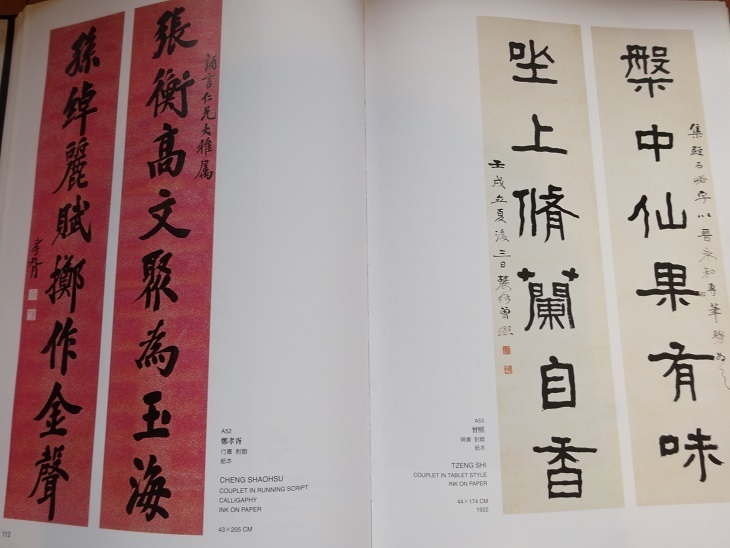 張衡高文聚為玉海
誦言仁兄大雅屬
孫綽麗賦擲作金聲
孝胥
A52
鄭孝胥
行書 對聯
紙本
CHENG SHAOHSU
COUPLET IN RUNNING SCRIPT
CALLIGAPHY
INK ON PAPER
43×205 CM
112
槃中仙果有味
集經石峪字以晉永和專筆勢為之
坐上脩蘭自香
壬戌立夏後三日農髯曾熙
A53
曾熙
對聯
紙本
TZENG SHI
COUPLET IN TABLET STYLE
INK ON PAPER
44×174 CM
1922